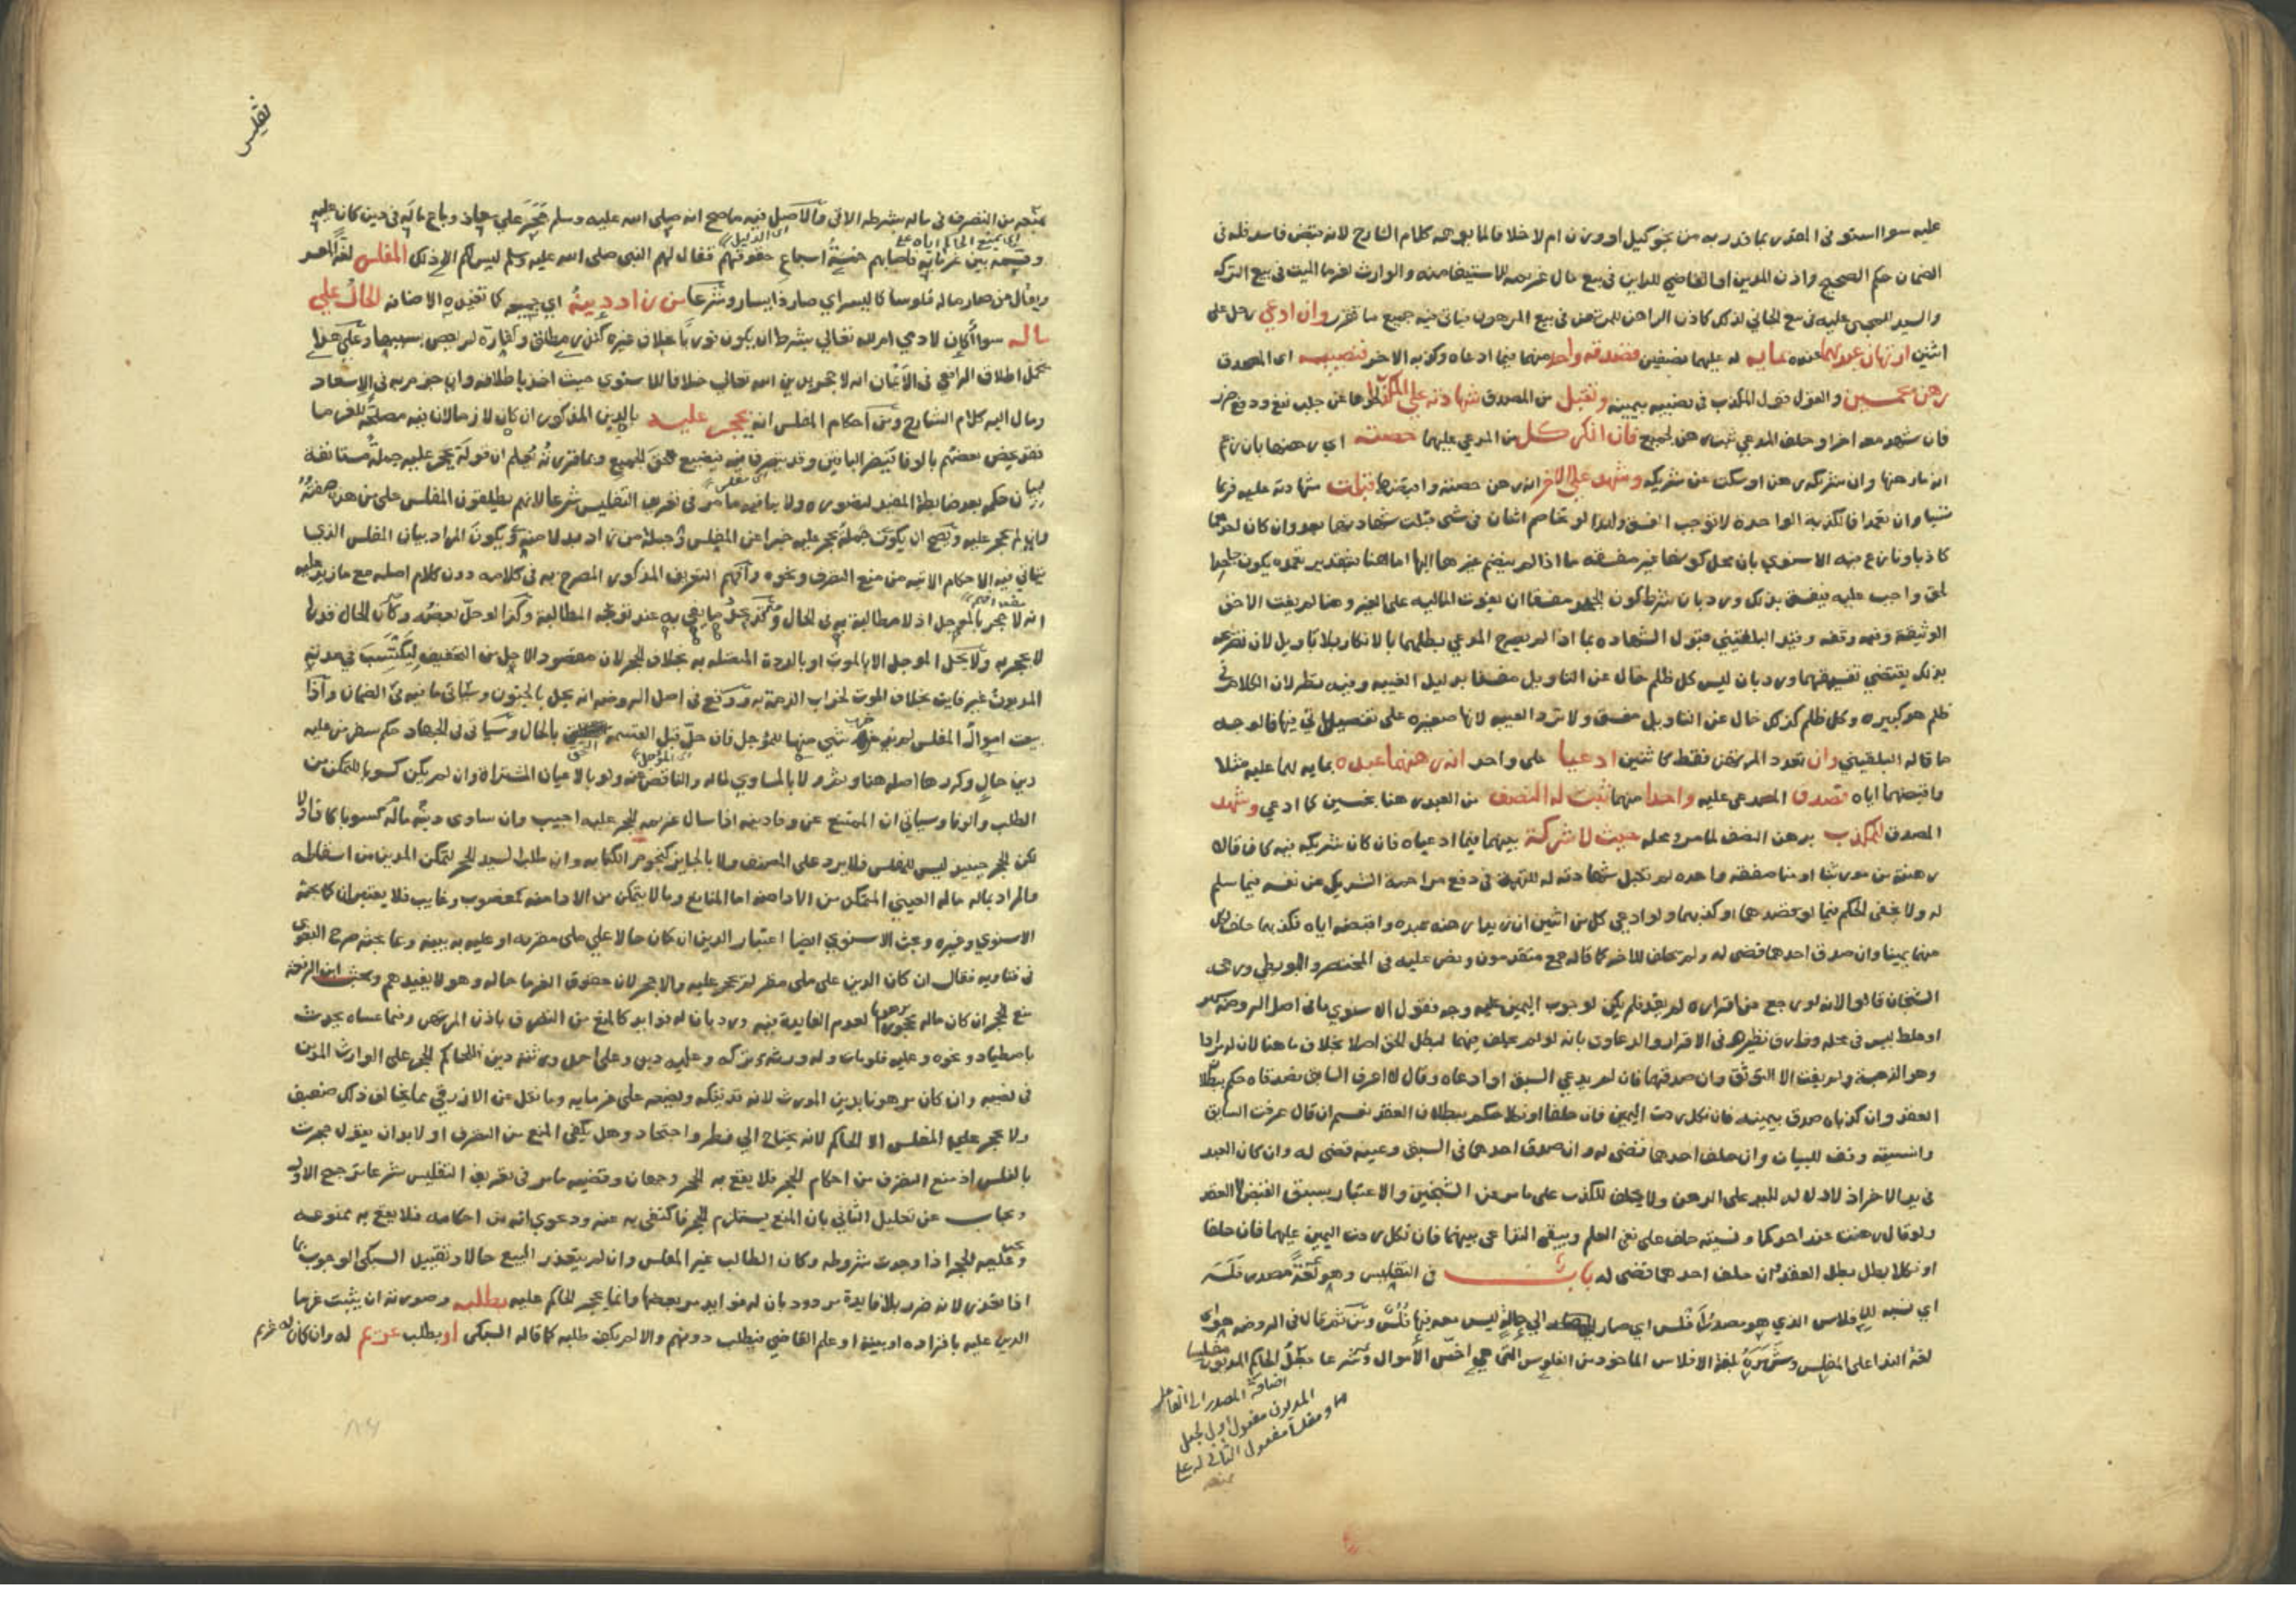 عليه سوا استوفى المعين بما قدر به من نحو كيل او وزن ام لا خلافا لما يوهمه كلام الشارح لانه قبض فاسد فله في
الضمان حكم الصحيح واذن المدين او القاضي للداين في بيع مال غريمه للاستيفا منه والوارث لغرما الميت في بيع التركة
والسيد للمجني عليه في بيع الجاني لذلك كاذن الراهن للمرتهن في بيع المرهون فياتي فيه جميع ما تقرر وان ادعى رجل على
اثنين ارتهان عبدهما عنده بماية له عليهما نصفين فصدقه واحد منهما فيما ادعاه وكذبه الاخر فنصيبه اي المصدق
رهن بخمسين والقول قول المكذب في نصيبه بيمينه وتقبل من المصدق شهادته على المكذب لخلوها عن جلب نفع ودفع ضرر
فان شهد معه اخر او حلف المدعي ثبت رهن الجميع فان انكر كل من المدعى عليهما حصته اي رهنها بان زعم
انه ما رهنها وان شريكه رهن او سكت عن شريكه وشهد على الاخر انه رهن حصته واقبضها قبلت شهادته عليه فربما
نسيا وان تعمدا فالكذبة الواحدة لا توجب الفسق ولهذا لو تخاصم اثنان في شي قبلت شهادتهما بعد وان كان احدهما
كاذبا ونازع فيه الاسنوي بان محل كونها غير مفسقة ما اذا لم ينضم غيرها اليها اما هنا فبتقدير تعمده يكون جاحدا
لحق واجب عليه فيفسق بذلك ورد بان شرط كون الجحد مفسقا ان يفوت المالية على الغير وهنا لم يفت الا حق
الوثيقة وفيه وقفة وقيد البلقيني قبول الشهادة بما اذا لم يصرح المدعي بظلمهما بالانكار بلا تاويل لان تصريحه
بذلك يقتضي تفسيقهما ورد بان ليس كل ظلم خال عن التاويل مفسقا بدليل الغيبة وفيه نظر لان الكلام في
ظلم هو كبيرة وكل ظلم كذلك خال عن التاويل مفسق ولا ترد الغيبة لانها صغيرة على تفصيل ياتي فيها فالوجه
ما قاله البلقيني وان تعدد المرتهن فقط كاثنين ادعيا على واحد انه رهنهما عبده بماية لهما عليه مثلا
واقبضهما اياه فصدق المدعى عليه واحدا منهما ثبت له النصف من العبد رهنا بخمسين كما ادعى وشهد
المصدق للمكذب برهن النصف لما مر ومحله حيث لا شركة بينهما فيما ادعياه فان كان شريكه فيه كان قال
رهنته من مورثنا او منا صفقة واحدة لم تقبل شهادته له للتهمة في دفع مزاحمة الشريك عن نفسه فيما سلم
له ولا يخفى الحكم فيما لو صدقهما او كذبهما ولو ادعى كل من اثنين ان زيدا رهنه عبده واقبضه اياه فكذبهما حلف لكل
منهما يمينا وان صدق احدهما قضي له ولم يحلف للاخر كما قاله جمع متقدمون ونص عليه في المختصر والبويطي ورجحه
الشيخان قالوا لانه لو رجع عن اقراره له لم يقبل فلم يكن لوجوب اليمين عليه وجه فقول الاسنوي ما في اصل الروضة سهو
او غلط ليس في محله وفارق نظيره في الاقرار والدعاوى بانه لو لم يحلف فيهما لبطل الحق اصلا بخلاف ما هنا لان له مرادا
وهو الذمة ولم يفت الا التوثق وان صدقهما فان لم يدعي السبق او ادعاه وقال لا اعرف السابق فصدقاه حكم ببطلان
العقد وان كذباه صدق بيمينه فان نكل ردت اليمين فان حلفا او نكلا حكم ببطلان العقد نعم ان قال عرفت السابق
وانسيته وقف للبيان وان حلف احدهما قضي له وان صدق احدهما في السبق وعينه قضي له وان كان العبد
في يد الاخر اذ لا دلالة لليد على الرهن ولا يحلف للمكذب على ما مر عن الشيخين والاعتبار بسبق القبض لا العقد
ولو قال رهنت عند احدكما ونسيته حلف على نفي العلم ويبقى التداعي بينهما فان نكل ردت اليمين عليهما فان حلفا
او نكلا بطل العقد وان حلف احدهما قضي له باب في التفليس وهو لغة مصدر فلسه
اي نسبه للافلاس الذي هو مصدر افلس اي صار الى حالة ليس معه فيها فلس ومن ثم قال في الروضة هو اي
لغة الندا على المفلس وشهره بصفة الافلاس الماخوذ من الفلوس التي هي اخس الاموال وشرعا جعل الحاكم المديون مفلسا
اضافة المصدر الى الفاعل
المديون مفعول اول لجعل
ومفلسا مفعول الثاني له
تفليس
بمنعه من التصرف في ماله بشرطه الاتي والاصل فيه ما صح انه صلى الله عليه وسلم حجر على معاذ وباع ماله في دين كان عليه
وقسمه بين غرمايه فاصابهم خمسة اسباع حقوقهم فقال لهم النبي صلى الله عليه وسلم ليس لكم الا ذلك المفلس لغة المعسر
ويقال من صار ماله فلوسا وشرعا من زاد دينه كما تفيده الاضافة الحال على
ماله سوا اكان لادمي ام لله تعالى بشرط ان يكون فوريا بخلاف غيره كنذر مطلق وكفارة لم يعص بسببها وعلى هذا
يحمل اطلاق الرافعي في الايمان انه لا حجر بدين الله تعالى خلافا للاسنوي حيث اخذ باطلاقه وان جزم به في الاسعاد
ومال اليه كلام الشارح ومن احكام المفلس انه يحجر عليه بالدين المذكور ان كان لازما لان فيه مصلحة للغرما
فقد يخص بعضهم بالوفا فيتضرر الباقين وقد يتصرف فيه فيضيع حق الجميع وبما قررته يعلم ان قوله يحجر عليه جملة مستانفة
لبيان حكمه بعد ضابطه المفيد لتصوره ولا ينافيه ما مر في تعريف التفليس شرعا لانهم يطلقون المفلس على من هذه صفته
وان لم يحجر عليه ويصح ان يكون جملة يحجر عليه خبرا عن المفلس وجملة من زاد بدلا منه ويكون المراد بيان المفلس الذي
ياتي فيه الاحكام الاتية من منع التصرف ونحوه وافهم التعريف المذكور المصرح به في كلامه دون كلام اصله مع ما زيد عليه
انه لا يحجر بالموجل اذ لا مطالبة به في الحال وكذا لو حل بعضه وكان الحال قدرا
لا يحجر به ولا يحل الموجل الا بالموت او بالردة المتصلة به بخلاف الحجر لان مقصود الاجل من التخفيف ليكتسب في مدته
المديون غير فايت بخلاف الموت لخراب الذمة به ووقع في اصل الروضة انه يحل بالجنون وسياتي ما فيه في الضمان واذا
بيعت اموال المفلس لم يدخر شي منها للموجل فان حل قبل القسمة التحق بالحال وسياتي في الجهاد حكم سفر من عليه
دين حال وكررها اصله هنا وبقدر لا بالمساوي لماله والناقص عنه ولو بالاعيان المشتراة وان لم يكن كسوبا للتمكن من
الطلب والوفا وسياتي ان الممتنع عن وفا دينه اذا سال غريمه الحجر عليه اجيب وان ساوى دينه ماله كسوبا كما قاله
لكن الحجر حينيذ ليس للفلس فلا يرد على المصنف ولا بالجايز كنجوم الكتابة وان طلب السيد الحجر لتمكن المدين من اسقاطه
والمراد بماله ماله العيني المتمكن من الادا منه اما المنافع وما لا يتمكن من الادا منه كمغصوب وغايب فلا يعتبران كما بحثه
الاسنوي وغيره وبحث الاسنوي ايضا اعتبار الدين ان كان حالا على ملي مقر به او عليه به بينة وبما بحثه صرح البغوي
في فتاويه فقال ان كان الدين على ملي مقر لم يحجر عليه والا حجر لان حقوق الغرما حالة وهو لا يفيدهم وبحث ابن الرفعة
منع الحجر ان كان ماله مرهونا لعدم الفايدة فيه ورد بان له فوايد كالمنع من التصرف باذن المرتهن وفيما عساه يحدث
باصطياد ونحوه وعليه
في نصيبه وان كان مرهونا بدين المورث لانه قد ينفكه ويضيعه على غرمايه وما نقل عن الازرقي مما يخالف ذلك ضعيف
ولا يحجر على المفلس الا الحاكم لانه يحتاج الى نظر واجتهاد وهل يكفي المنع من التصرف او لا بد ان يقول حجرت
بالفلس اذ منع التصرف من احكام الحجر فلا يقع به الحجر وجهان وقضية ما مر في تعريف التفليس شرعا ترجيح الاول
ويجاب عن تعليل الثاني بان المنع يستلزم الحجر فاكتفي به عنه ودعوى انه من احكامه فلا يقع به ممنوعة
ويجب عليه الحجر اذا وجدت شروطه وكان الطالب غير المفلس وان لم يتعذر البيع حالا وتقييد السبكي الوجوب بما
اذا تعذر لانه ضرر بلا فايدة مردود بان له فوايد مر بعضها وانما يحجر الحاكم عليه بطلبه وصورته ان يثبت غرما
الدين عليه باقراره او بينة او علم القاضي فيطلب دونهم والا لم يكف طلبه كما قاله السبكي او بطلب غريم له وان كان له غريم